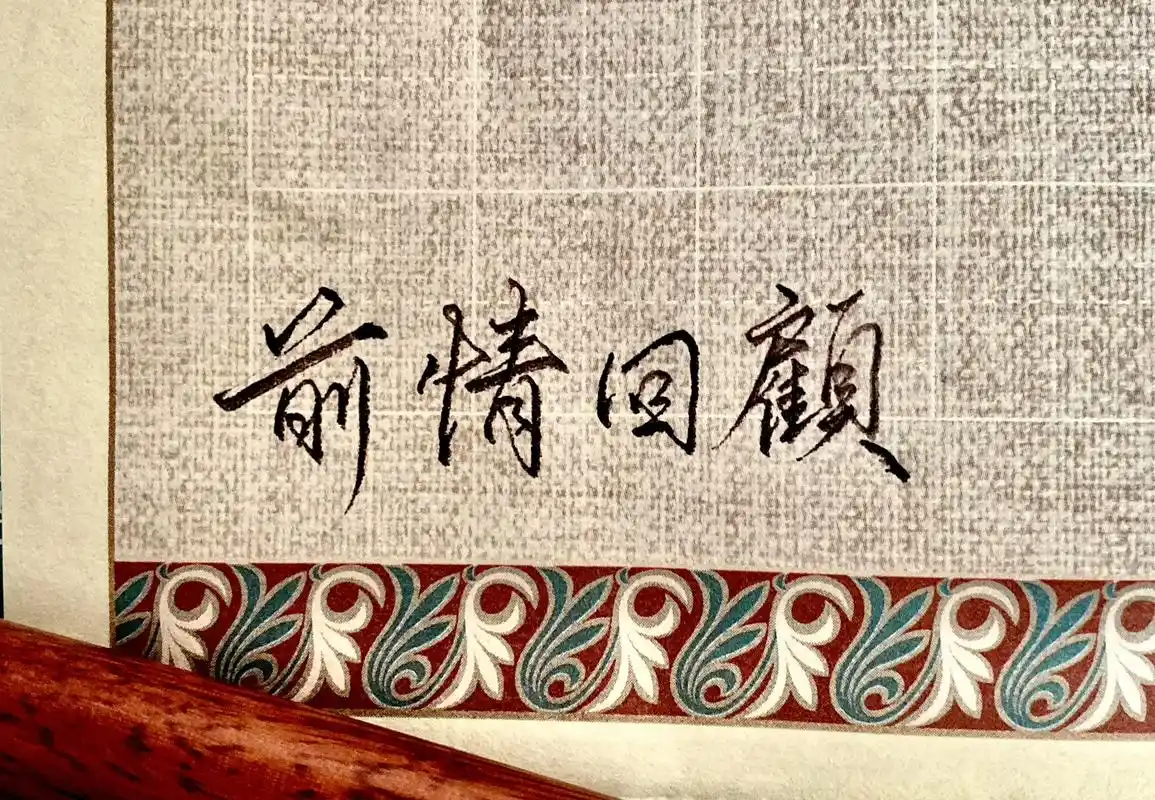 前情回顧